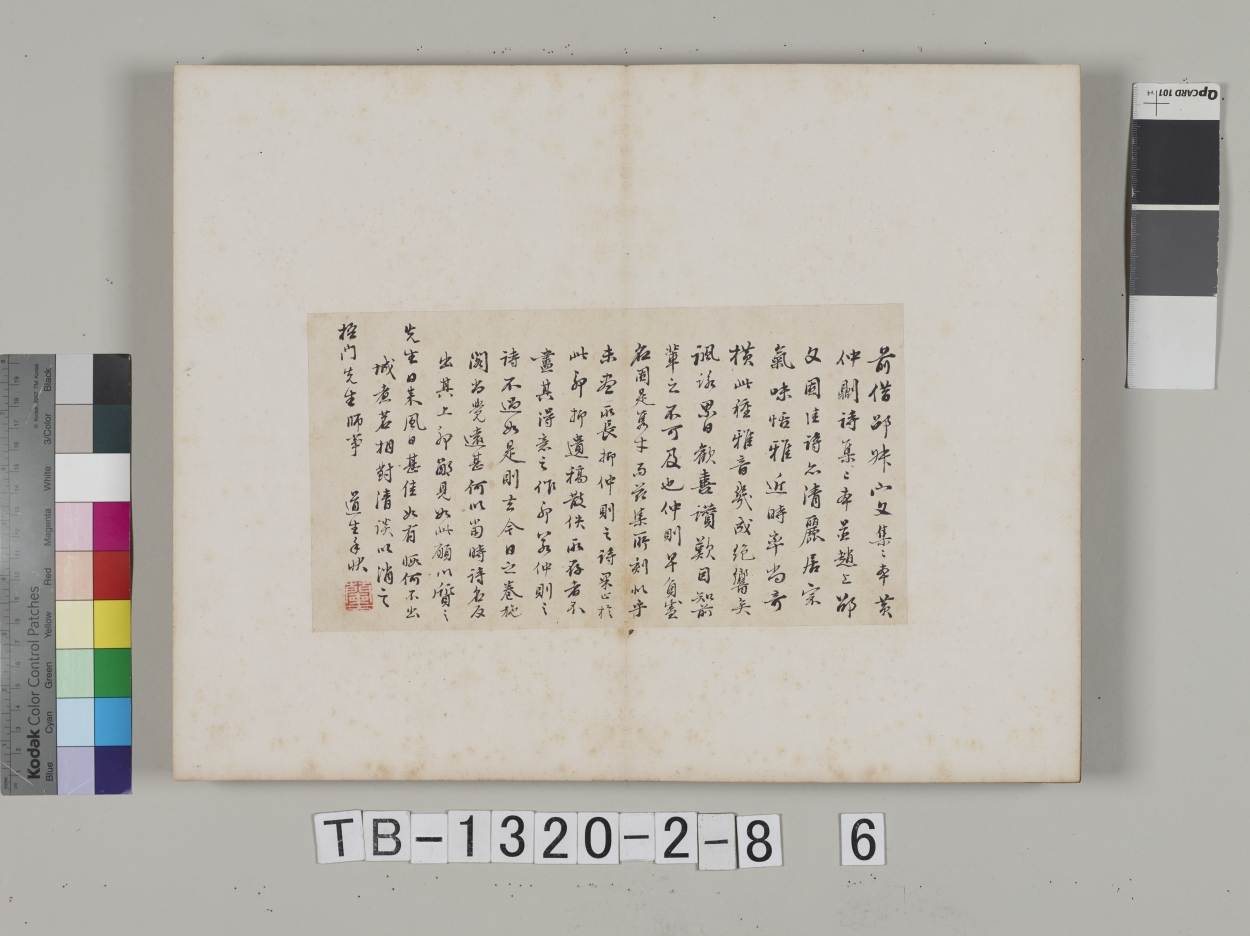 前借邵 山文集二本黄
仲則詩集二本並趙上邵
文固佳詩亦清麗居宗
氣味恬雅近時率尚奇
橫此種雅音幾成絶響矣
諷詠累日歡喜讚歎因知前
輩之不可及也仲則早負盛
名固是雋才而茲集所刻似乎
未盡所長抑仲則之詩果止於
此耶抑遺稿散佚所存者不
盡其得意之作耶若仲則之
詩不過如是則去今日之卷施
閣尚覺遠甚何以當時詩名反
出其上耶鄙見如此願以質之
先生日來風日甚佳如有暇何不出
城煮茗相對清談以消之
極門先生師事 道生手狀
Kodak Color Control Patches
Blue
Cyan
Green
Yellow
Red
Magenta
White
3/Color
Black
QpCARD 101
TB-1320-2-8 6